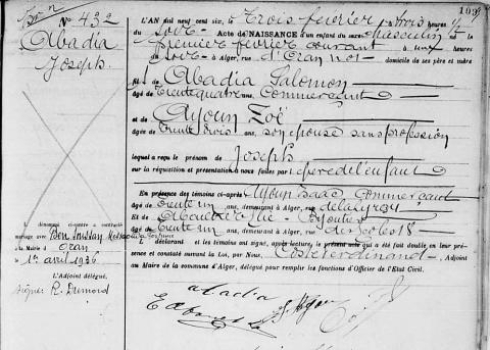 N° 432
Abadia
Joseph
L'AN mil neuf cent six, le trois février à trois heures ½
du soir Acte de NAISSANCE d'un enfant du sexe masculin né le
premier février courant à onze heures
du soir à Alger, rue d'Oran n° 1 domicile de ses père et mère
de Abadia Salomon
âgé de trente quatre ans, Commerçant
et Ayoun Zoé
âgée de trente trois ans, son épouse sans profession
lequel a reçu le prénom de Joseph
sur la réquisition et présentation à nous faites par le père de l'enfant
En présence des témoins ci-après Ayoun Isaac Commerçant
âgé de trente un ans, demeurant à Alger, rue de la Lyre 34
Et Aboulker Elie Bijoutier
âgé de trente un ans, demeurant à Alger, rue 18
déclarant et les témoins ont signé, après lecture, le présent acte qui a été fait double en leur présence
et constaté suivant la Loi, par Nous, Coste Ferdinand Adjoint
au Maire de la commune d'Alger, délégué pour remplir les fonctions d'Officier de l'Etat Civil.
dénommé ci-contre a contracté
mariage avec Ben Soussan
à la Mairie d'Oran
le 1er avril 1936
L'Adjoint délégué,
signé R. Dumord
abadia